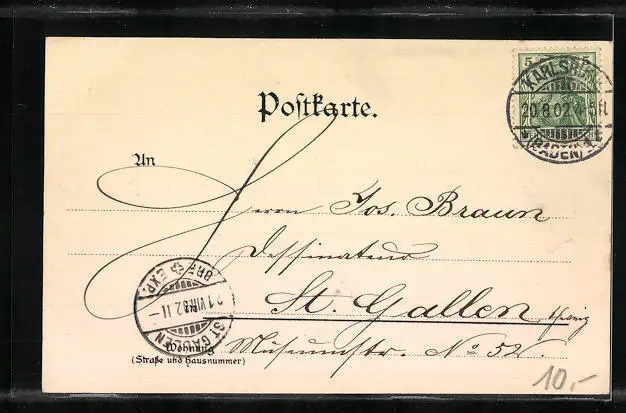 5
KARLSRUHE
20.8.02.4-5N.
(BADEN)
Postkarte.
An
Herrn Jos. Braun
Dessinateur
St. Gallen, Schweiz
BRF. EXP.
21.VIII.02.11-
ST. GALLEN
Wohnung Museumstr. No 52.
(Straße und Hausnummer)
10,-